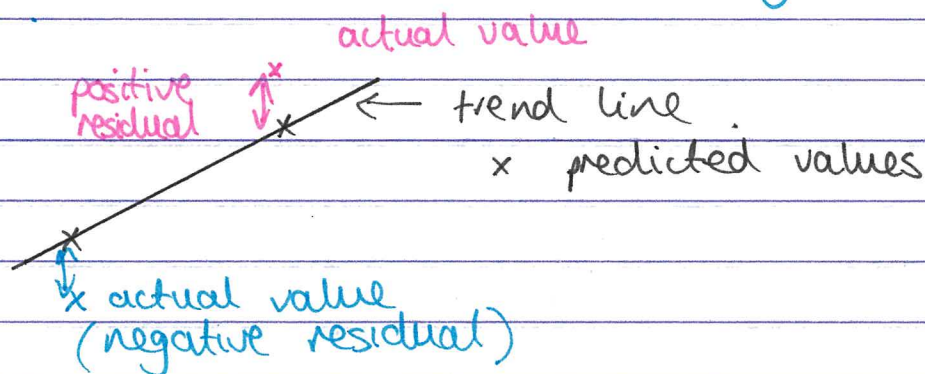 actual value
positive
residual
← trend line
x predicted values
x actual value
(negative residual)